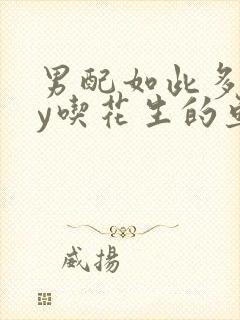 男配如此多
y喫花生的
威揚